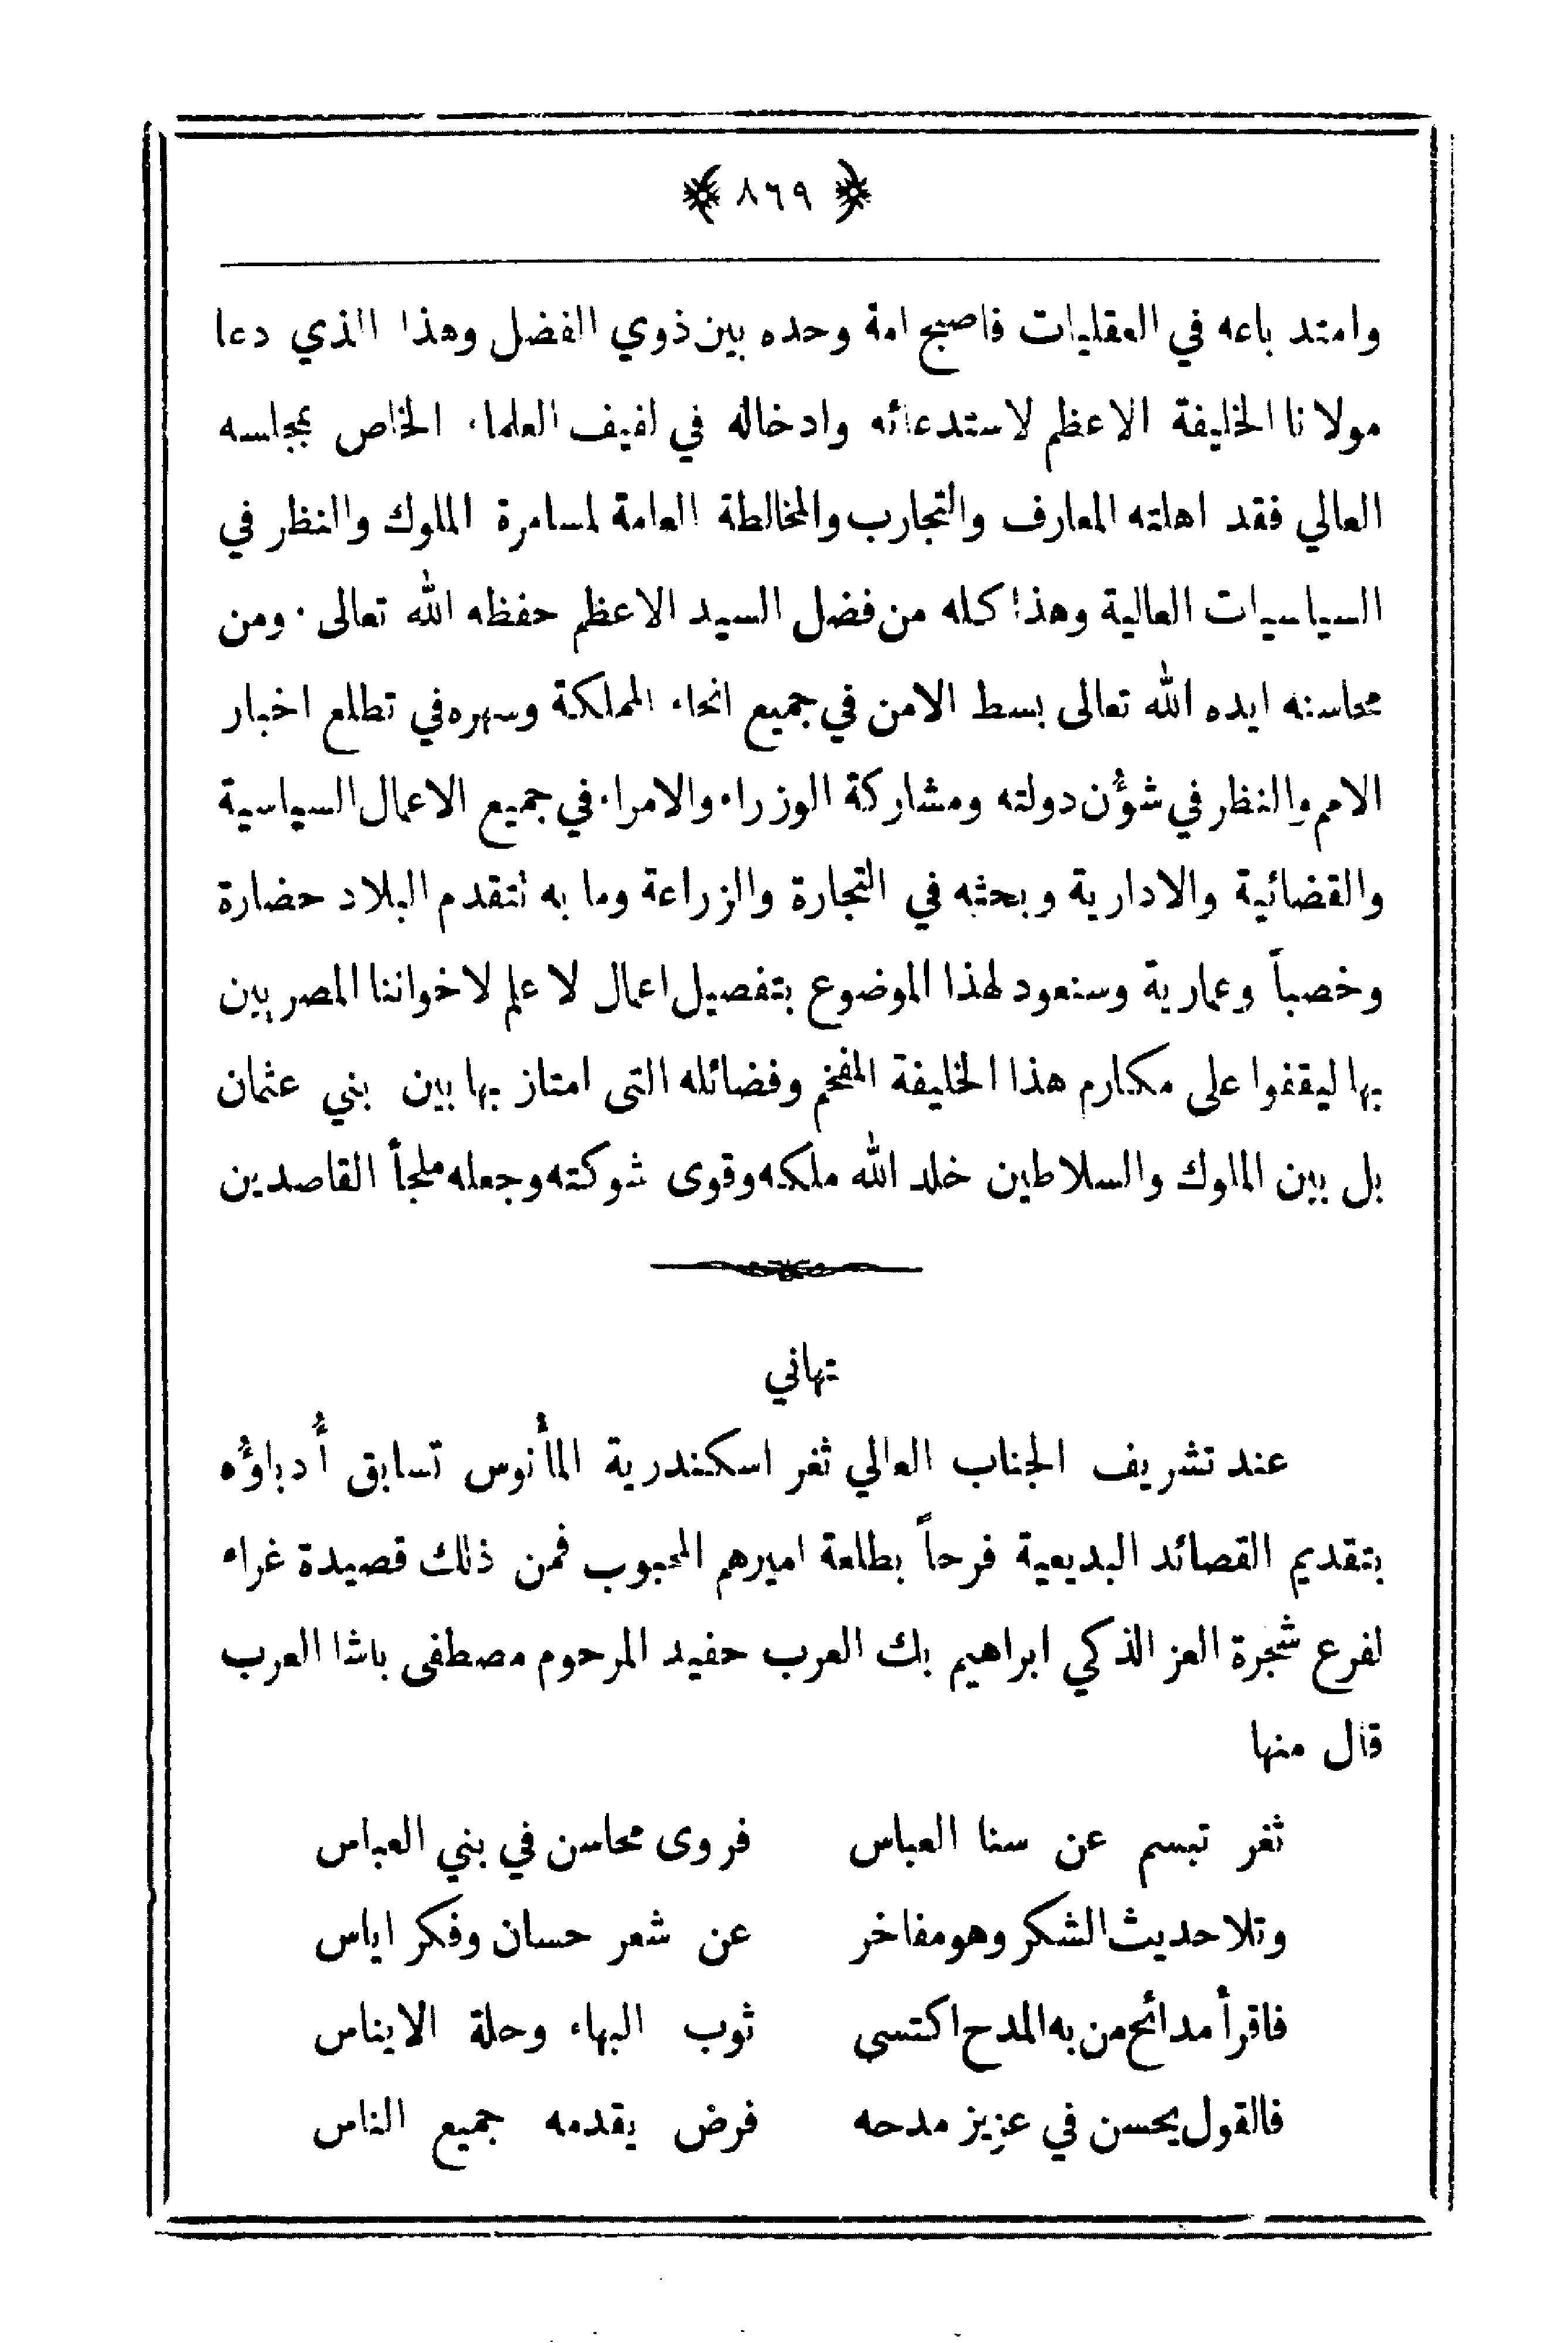 ﴿ ٨٦٩ ﴾
وامتد باعه في العقليات فاصبح امة وحده بين ذوي الفضل وهذا الذي دعا
مولانا الخليفة الاعظم لاستدعائه وادخاله في لفيف العلماء الخاص بمجلسه
العالي فقد اهلته المعارف والتجارب والمخالطة العامة لمسامرة الملوك والنظر في
السياسيات العالية وهذا كله من فضل السيد الاعظم حفظه الله تعالى · ومن
محاسنه ايده الله تعالى بسط الامن في جميع انحاء المملكة وسهره في تطلع اخبار
الامم والنظر في شؤُن دولته ومشاركة الوزراء والامراء في جميع الاعمال السياسية
والقضائية والادارية وبحثه في التجارة والزراعة وما به تتقدم البلاد حضارة
وخصباً وعمارية وسنعود لهذا الموضوع بتفصيل اعمال لا علم لاخواننا المصربين
بها ليقفوا على مكارم هذا الخليفة المفخم وفضائله التى امتاز بها بين بني عثمان
بل بين الملوك والسلاطين خلد الله ملكه وقوى شوكته وجعله ملجأ القاصدين
تهاني
عند تشريف الجناب العالي ثغر اسكندرية المأنوس تسابق أُدباؤُه
بتقديم القصائد البديعية فرحاً بطلعة اميرهم المحبوب فمن ذلك قصيدة غراء
لفرع شجرة العز الذكي ابراهيم بك العرب حفيد المرحوم مصطفى باشا العرب
قال منها
ثغر تبسم عن سنا العباس فروى محاسن في بني العباس
وتلا حديث الشكر وهو مفاخر عن شعر حسان وفكر اياس
فاقرأ مدائح من به المدح اكتسى ثوب البهاء وحلة الايناس
فالقول يحسن في عزيز مدحه فرض يقدمه جميع الناس